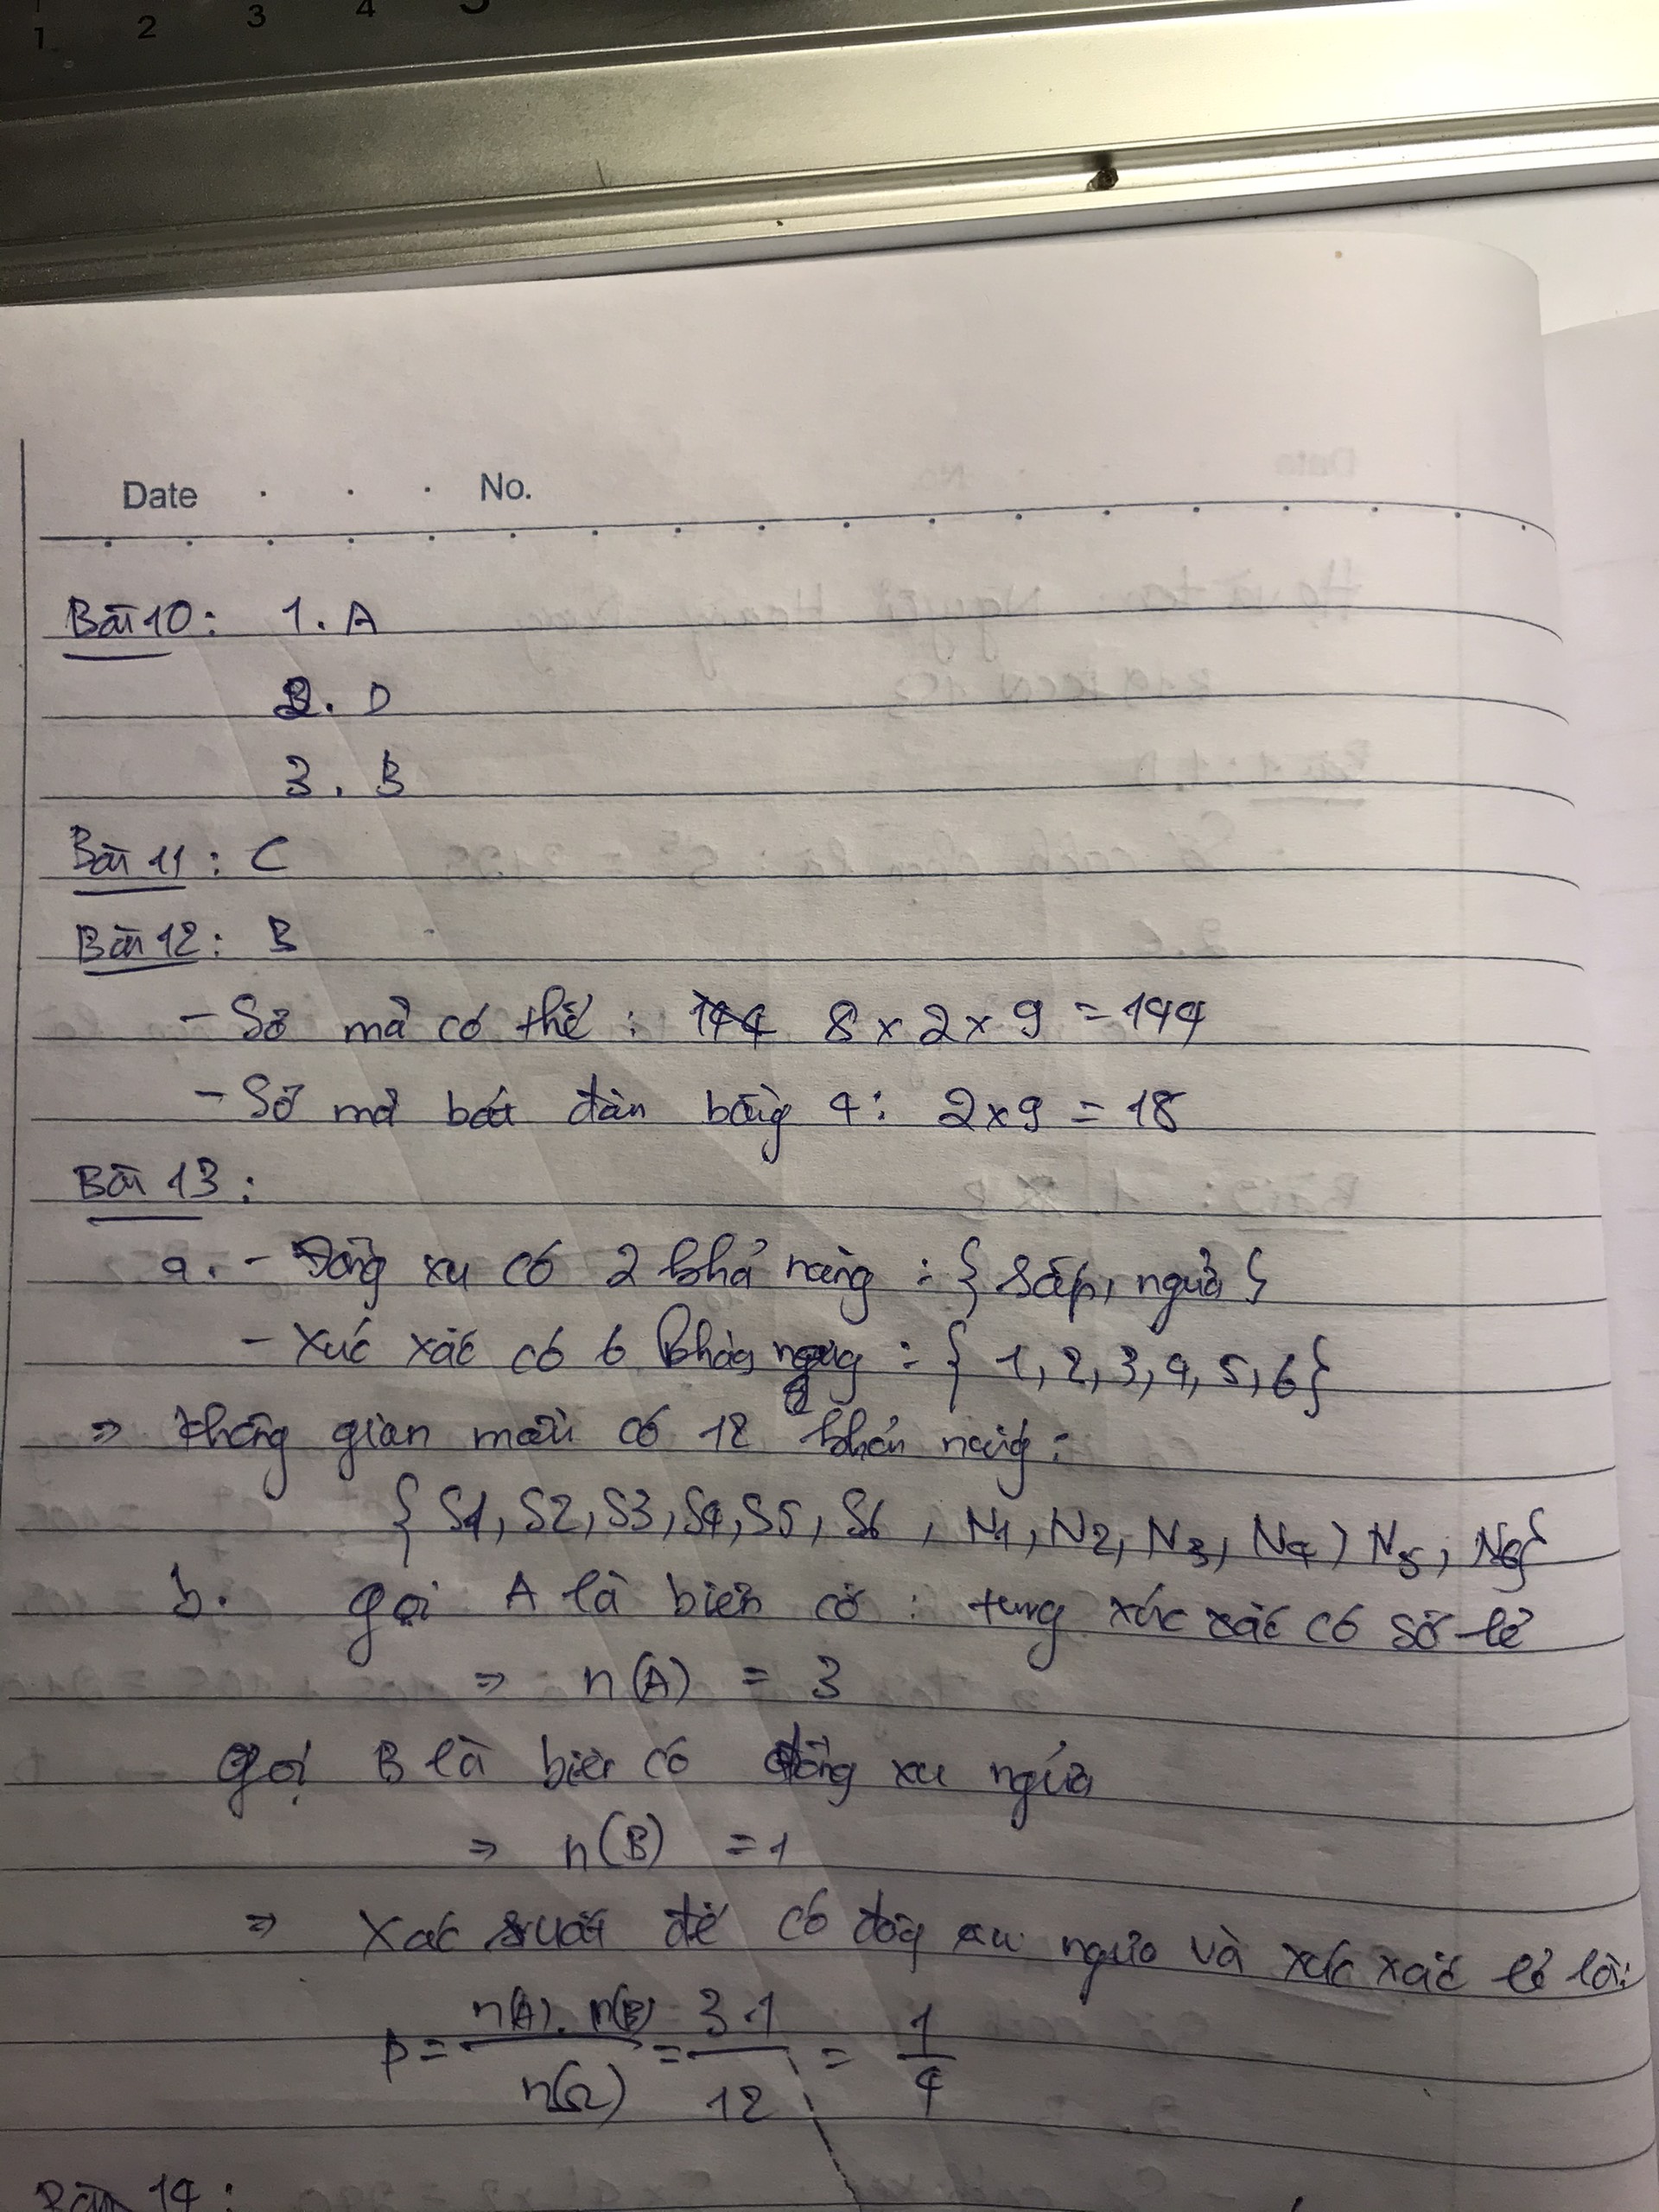 1 2 3 4 5
Date . . . No.
Bài 10: 1. A
2. D
3. B
Bài 11: C
Bài 12: B
- Số mã có thể: 144 8 x 2 x 9 = 144
- Số mã bắt đàn bằng 4: 2 x 9 = 18
Bài 13:
a. - Đồng xu có 2 khả năng: {Sấp, ngửa}
- Xúc xắc có 6 khả năng: {1, 2, 3, 4, 5, 6}
⇒ Không gian mẫu có 12 khả năng:
{S1, S2, S3, S4, S5, S6, N1, N2, N3, N4, N5, N6}
b. Gọi A là biến cố: tung xúc xắc có số lẻ
⇒ n(A) = 3
Gọi B là biến cố đồng xu ngửa
⇒ n(B) = 1
⇒ Xác suất để có đồng xu ngửa và xúc xắc lẻ là:
P = n(A). n(B) / n(Ω) = 3.1 / 12 = 1/4
Bài 14: